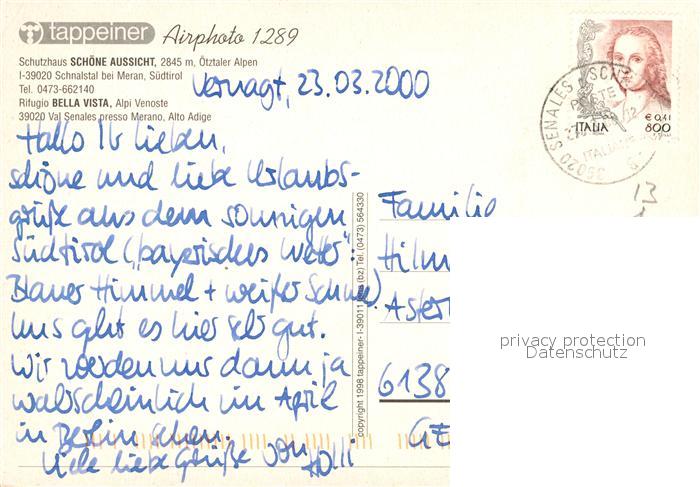 tappeiner Airphoto 1289
Schutzhaus SCHÖNE AUSSICHT, 2845 m, Ötztaler Alpen
I-39020 Schnalstal bei Meran, Südtirol
Tel. 0473-662140
Rifugio BELLA VISTA, Alpi Venoste
39020 Val Senales presso Merano, Alto Adige
Vernagt, 23.03.2000
Hallo Ihr lieben,
schöne und liebe Urlaubs-
grüße aus dem sonnigen
Südtirol („bayerisches Wetter“:
Blauer Himmel + weißer Schnee)
Uns geht es hier sehr gut.
Wir werden uns dann ja
wahscheinlich im April
in Berlin sehen.
Viele liebe Grüße von Holli
copyright 1998 tappeiner- I-39011 (bz) Tel. (0473) 564330
€ 0,41
ITALIA 800
39020 SENALES SCHN
POSTE
ITALIANE
13
Familie
Hilm
Aster
6138
privacy protection
Datenschutz